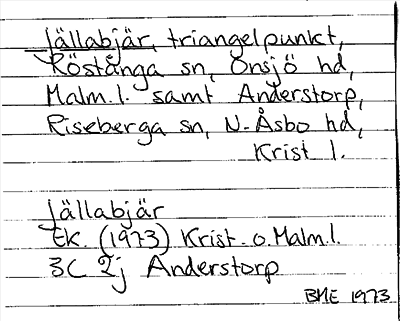 Jällabjär, triangelpunkt,
Röstånga sn, Onsjö hd,
Malm.l. samt Anderstorp,
Riseberga sn, N. Åsbo hd,
Krist l.
Jällabjär
Ek. (1973) Krist. o. Malm.l.
3C 2j Anderstorp
BME 1973